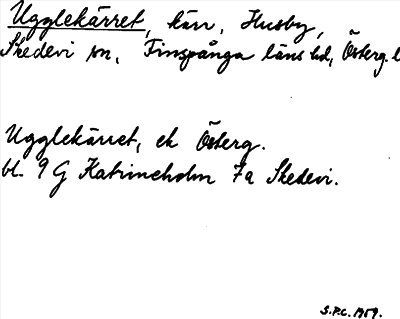 Ugglekärret, kärr, Husby,
Skedevi sn, Finspånga läns hd, Österg. l
Ugglekärret, ek Österg.
bl. 9 G Katrineholm 7a Skedevi.
S.P.C. 1959.